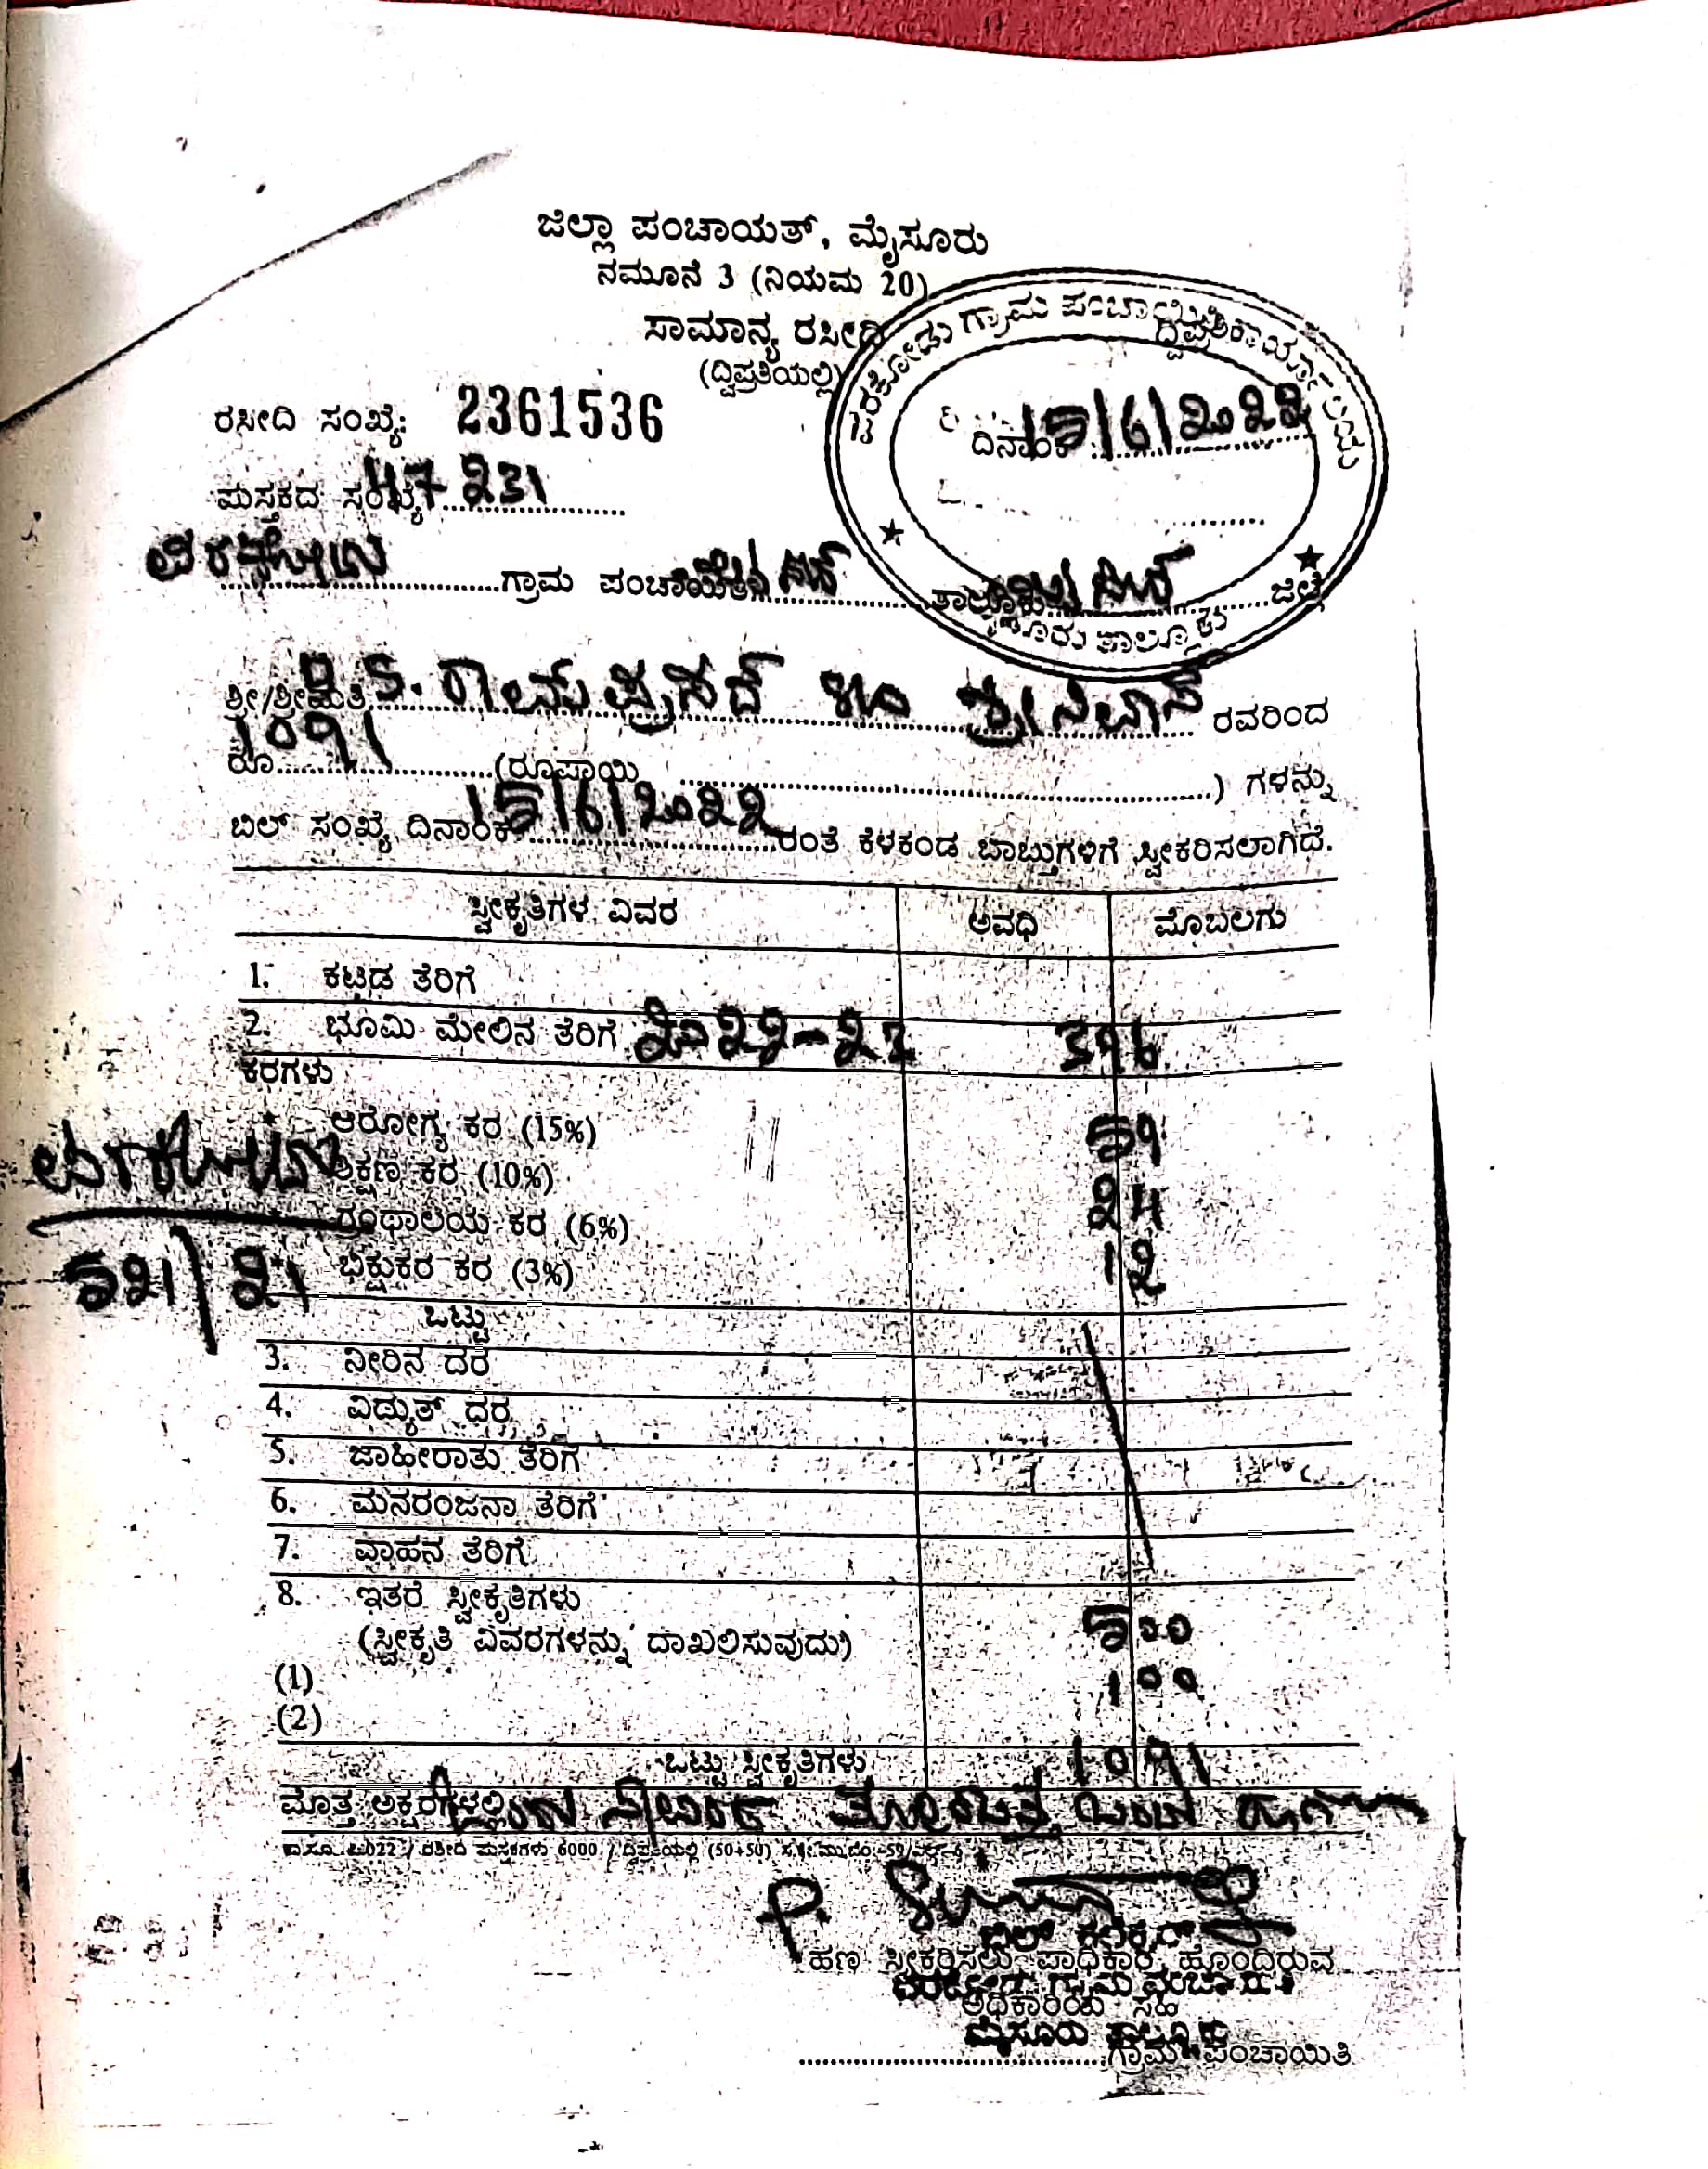 ಜಿಲ್ಲಾ ಪಂಚಾಯತ್, ಮೈಸೂರು
ನಮೂನೆ 3 (ನಿಯಮ 20)
ಸಾಮಾನ್ಯ ರಸೀದಿ
(ದ್ವಿಪ್ರತಿಯಲ್ಲಿ)
ಗ್ರಾಮ ಪಂಚಾಯಿತಿ
ರಸೀದಿ ಸಂಖ್ಯೆ: 2361536
ದಿನಾಂಕ 15/6/2022
ಪುಸ್ತಕದ ಸಂಖ್ಯೆ 47231
ವರಕೋಡು ಗ್ರಾಮ ಪಂಚಾಯಿತಿ ತಾಲ್ಲೂಕು ಜಿಲ್ಲೆ
ಮೈಸೂರು ತಾಲ್ಲೂಕು
ಶ್ರೀ/ಶ್ರೀಮತಿ S. ರಾಮ್ ಪ್ರಸಾದ್ S/o ಶ್ರೀನಿವಾಸ್ ರವರಿಂದ
ರೂ 1091 (ರೂಪಾಯಿ ) ಗಳನ್ನು
ಬಿಲ್ ಸಂಖ್ಯೆ ದಿನಾಂಕ 15/6/2022 ರಂತೆ ಕೆಳಕಂಡ ಬಾಬ್ತುಗಳಿಗೆ ಸ್ವೀಕರಿಸಲಾಗಿದೆ.
ಸ್ವೀಕೃತಿಗಳ ವಿವರ ಅವಧಿ ಮೊಬಲಗು
1. ಕಟ್ಟಡ ತೆರಿಗೆ
2. ಭೂಮಿ ಮೇಲಿನ ತೆರಿಗೆ 2022-23 396
ಕರಗಳು
ಆರೋಗ್ಯ ಕರ (15%) 59
ಶಿಕ್ಷಣ ಕರ (10%)
ಗ್ರಂಥಾಲಯ ಕರ (6%) 24
ಭಿಕ್ಷುಕರ ಕರ (3%) 12
521/21
ಒಟ್ಟು
3. ನೀರಿನ ದರ
4. ವಿದ್ಯುತ್ ಧರ
5. ಜಾಹೀರಾತು ತೆರಿಗೆ
6. ಮನರಂಜನಾ ತೆರಿಗೆ
7. ವಾಹನ ತೆರಿಗೆ
8. ಇತರೆ ಸ್ವೀಕೃತಿಗಳು
(ಸ್ವೀಕೃತಿ ವಿವರಗಳನ್ನು ದಾಖಲಿಸುವುದು) 500
(1) 100
(2)
ಒಟ್ಟು ಸ್ವೀಕೃತಿಗಳು 1091
ಮೊತ್ತ ಅಕ್ಷರಗಳಲ್ಲಿ
ರಸೀದಿ ಪುಸ್ತಕಗಳು 6000 / ದ್ವಿಪ್ರತಿಯಲ್ಲಿ (50+50)
ಬಿಲ್ ಕಲೆಕ್ಟರ್
ಹಣ ಸ್ವೀಕರಿಸಲು ಪಾಧಿಕಾರ ಹೊಂದಿರುವ
ವರಕೋಡು ಗ್ರಾಮ ಪಂಚಾಯಿತಿ
ಅಧಿಕಾರಿಯ ಸಹಿ
ಮೈಸೂರು ತಾಲ್ಲೂಕು
ಗ್ರಾಮ ಪಂಚಾಯಿತಿ